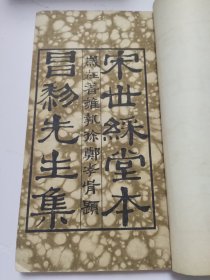 宋世綵堂本
歲在著雍執徐鄭孝胥題
昌黎先生集